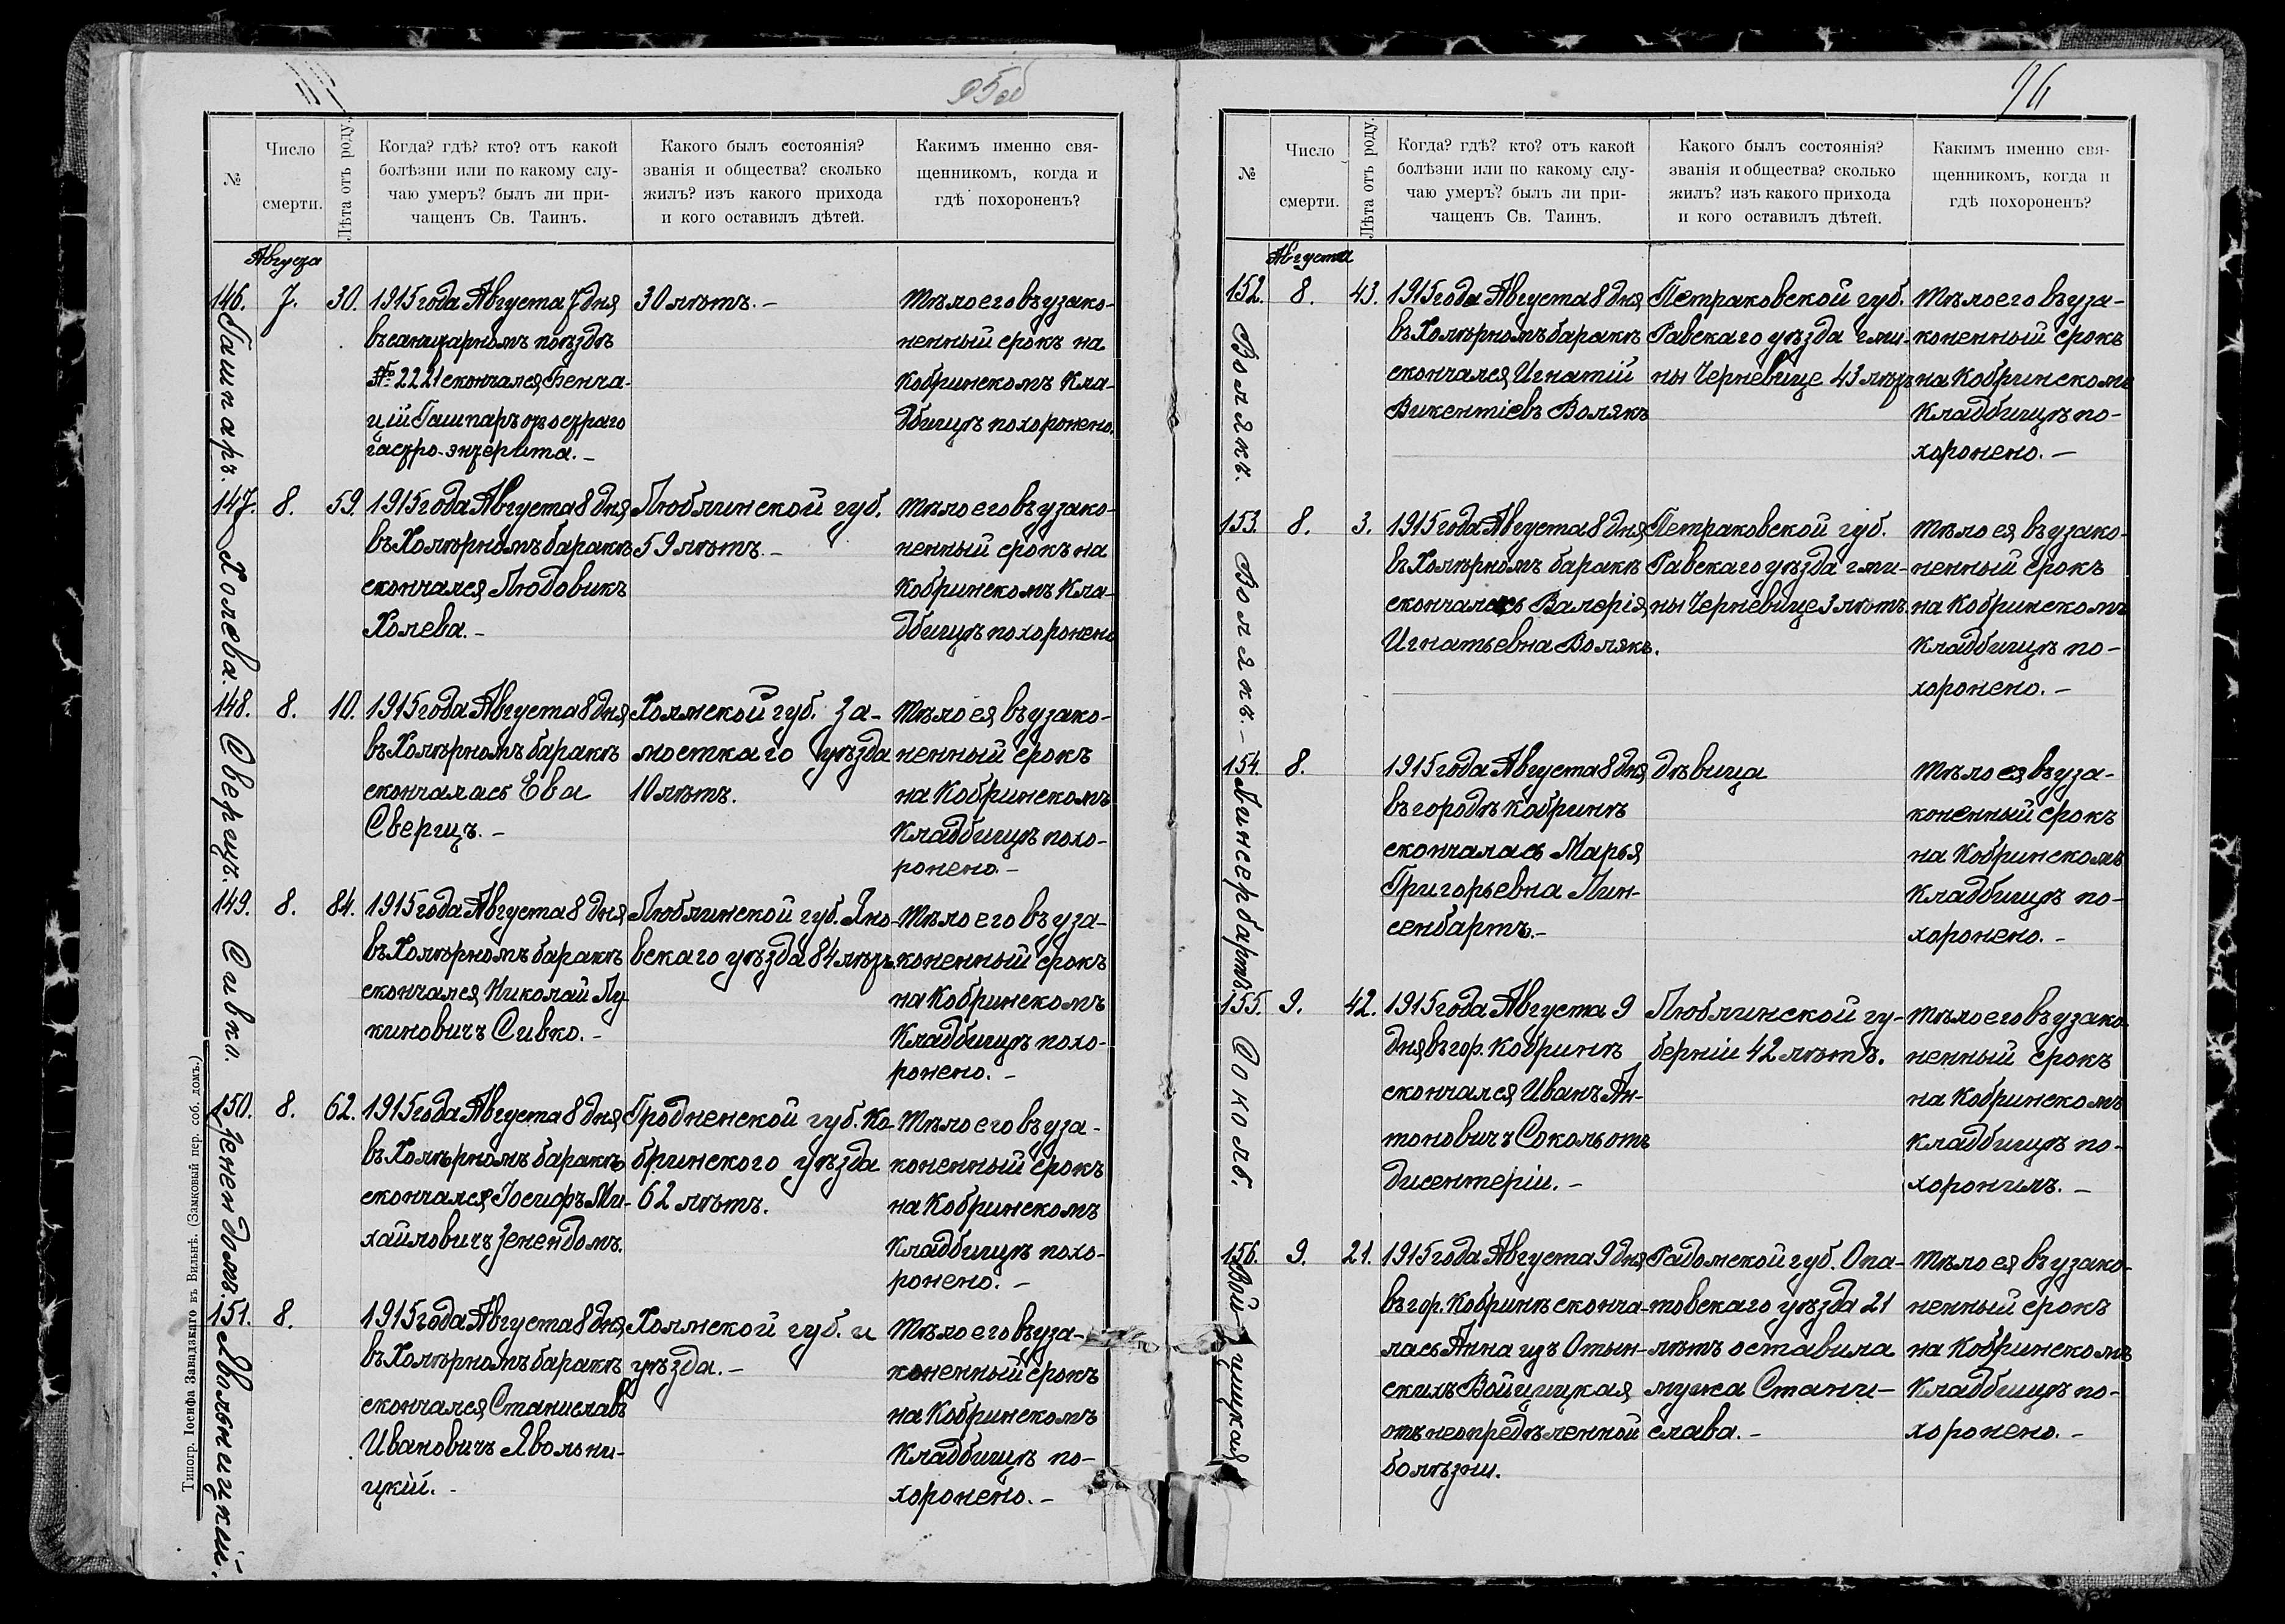 95об
№
Число
смерти.
Лѣта отъ роду.
Когда? гдѣ? кто? отъ какой
болѣзни или по какому слу-
чаю умеръ? былъ ли при-
чащенъ Св. Таинъ.
Какого былъ состоянія?
званія и общества? сколько
жилъ? изъ какого прихода
и кого оставилъ дѣтей.
Какимъ именно свя-
щенникомъ, когда и
гдѣ похороненъ?
Августа
146.
Гашпаръ.
7.
30.
1915 года Августа 7 дня
въ санитарномъ поѣздѣ
№ 2221 скончался
цій Гашпаръ отъ остраго
гастро-энтерита. –
30 лѣтъ. –
Тѣло его въ узако-
ненный срокъ на
Кобринскомъ Кла-
дбищѣ похоронено.
147.
Холева.
8.
59.
1915 года Августа 8 дня
въ Холѣрномъ баракѣ
скончался Людовикъ
Холева. –
Люблинской губ.
59 лѣтъ. –
Тѣло его въ узако-
ненный срокъ на
Кобринскомъ Кла-
дбищѣ похоронено
148.
Сверщъ.
8.
10.
1915 года Августа 8 дня
въ Холѣрномъ баракѣ
скончалась Ева
Сверщъ. –
Холмской губ. За-
мосткаго уѣзда
10 лѣтъ.
Тѣло ея въ узако-
ненный срокъ
на Кобринскомъ
Кладбищѣ похо-
ронено. –
149.
Сивко.
8.
84.
1915 года Августа 8 дня
въ Холѣрномъ баракѣ
скончался Николай Лу
киновичъ Сивко. –
Люблинской губ. Яно-
вскаго уѣзда 84 лѣтъ.
Тѣло его въ уза-
коненный срокъ
на Кобринскомъ
Кладбищѣ похо-
ронено. –
150.
Зенендомъ.
8.
62.
1915 года Августа 8 дня
въ Холѣрномъ баракѣ
скончался Іосифъ Ми-
хайловичъ Зенендомъ.
Гродненской губ. Ко-
бринского уѣзда
62 лѣтъ.
Тѣло его въ уза-
коненный срокъ
на Кобринскомъ
Кладбищѣ похо-
ронено. –
151.
Явольницкій.
8.
1915 года Августа 8 дня
въ Холѣрномъ баракѣ
скончался Станиславъ
Ивановичъ Явольни-
цкій. –
Холмской губ. и
уѣзда. –
Тѣло его въ уза-
коненный срокъ
на Кобринскомъ
Кладбищѣ по-
хоронено. –
Типогр. Іосифа Завадзкаго въ Вильнѣ. (Замковый пер. соб. домъ.)
96
№
Число
смерти.
Лѣта отъ роду.
Когда? гдѣ? кто? отъ какой
болѣзни или по какому слу-
чаю умеръ? былъ ли при-
чащенъ Св. Таинъ.
Какого былъ состоянія?
званія и общества? сколько
жилъ? изъ какого прихода
и кого оставилъ дѣтей.
Какимъ именно свя-
щенникомъ, когда и
гдѣ похороненъ?
Августа
152.
Волякъ.
8.
43.
1915 года Августа 8 дня
въ Холѣрномъ баракѣ
скончался Игнатій
Викентіевъ Волякъ
Петраковской губ.
Равскаго уѣзда гми-
ны Черневице 43 лѣтъ
Тѣло его въ уза-
коненный срокъ
на Кобринскомъ
Кладбищѣ по-
хоронено. –
153.
Волякъ. –
8.
3.
1915 года Августа 8 дня
въ Холѣрномъ баракѣ
скончалась Валерія
Игнатьевна Волякъ.
Петраковской губ.
Равскаго уѣзда гми-
ны Черневице 3 лѣтъ
Тѣло ея въ узако-
ненный срокъ
на Кобринскомъ
Кладбищѣ по-
хоронено. –
154.
Линсербартъ.
8.
1915 года Августа 8 дня
въ городѣ Кобринѣ
скончалась Марья
Григорьевна Лин-
сенбартъ. –
дѣвица
Тѣло ея въ уза-
коненный срокъ
на Кобринскомъ
Кладбищѣ по-
хоронено. –
155.
Соколъ.
9.
42.
1915 года Августа 9
дня въ гор. Кобринѣ
скончался Иванъ Ан-
тоновичъ Соколъ отъ
дисентеріи. –
Люблинской гу-
берніи 42 лѣтъ.
Тѣло его въ узако-
ненный срокъ
на Кобринскомъ
Кладбищѣ по-
хоронилъ. –
156.
Вой-
цицкая
9.
21.
1915 года Августа 9 дня
въ гор. Кобринѣ сконча-
лась Анна изъ Отын-
скихъ Войцицкая
отъ неопредѣленной
болѣзни.
Радомской губ. Опа-
товскаго уѣзда 21
лѣтъ оставила
мужа Стани-
слава. –
Тѣло ея въ узако-
ненный срокъ
на Кобринскомъ
Кладбищѣ по-
хоронено. –